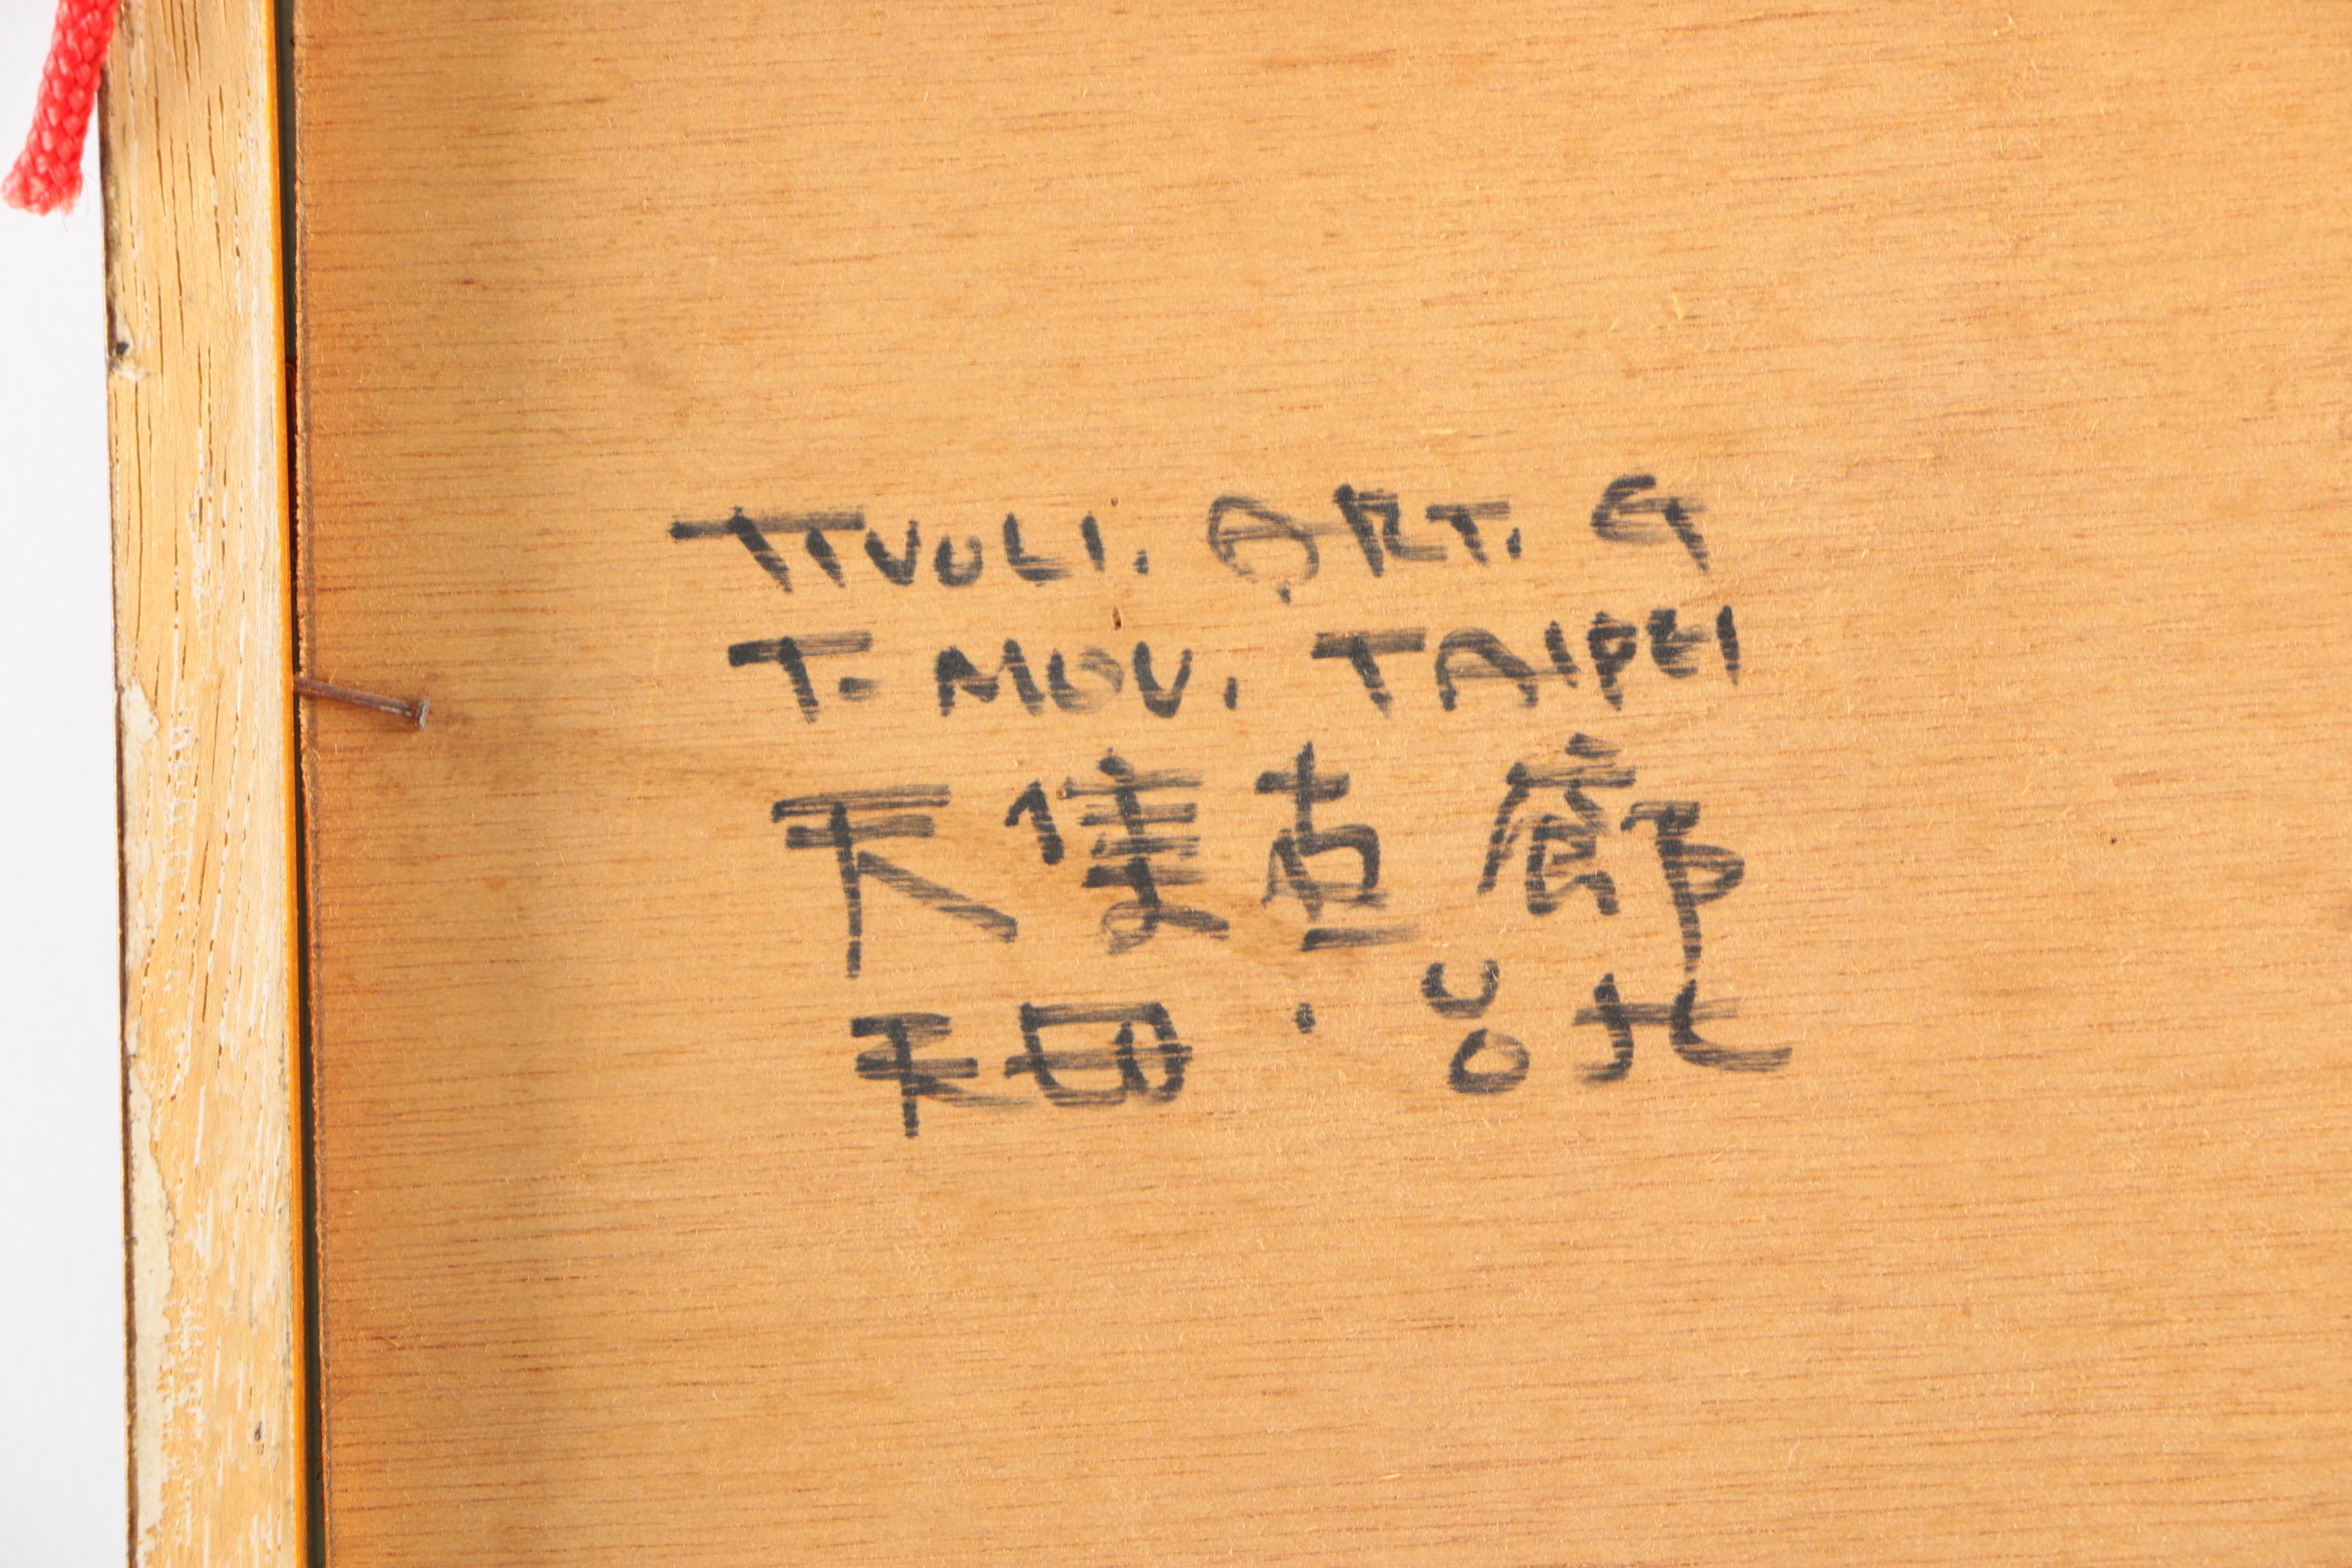 TIVOLI. ART. G
T. MOU. TAIPEI
天 画廊
天母・台北